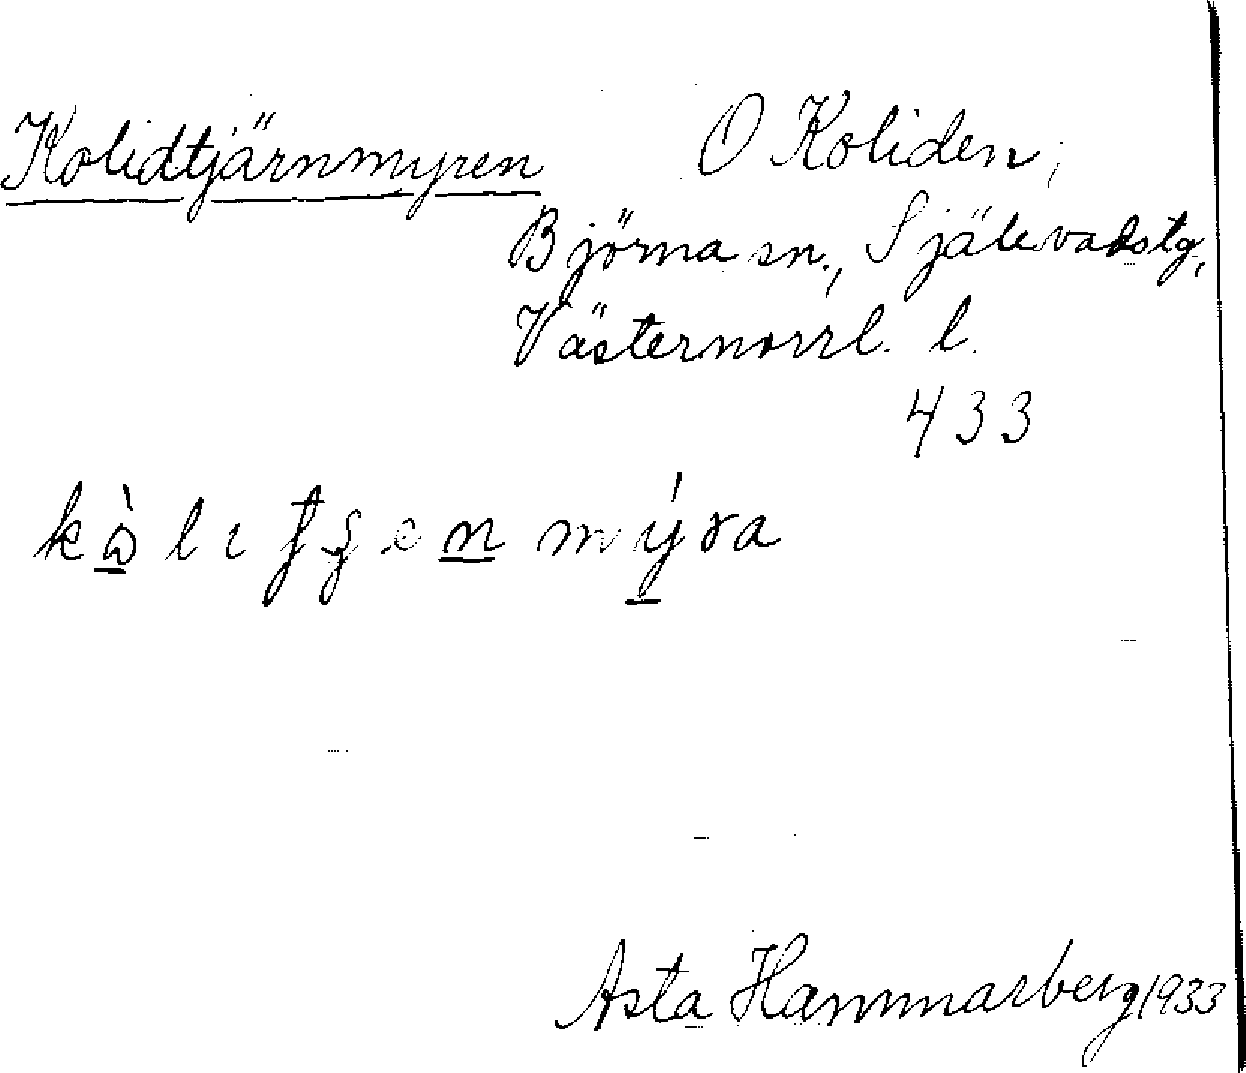 Kolidtjärnmyren O Koliden,
Björna sn., Själevadstg,
Västernorrl. l.
433
Asta Hammarberg 1933